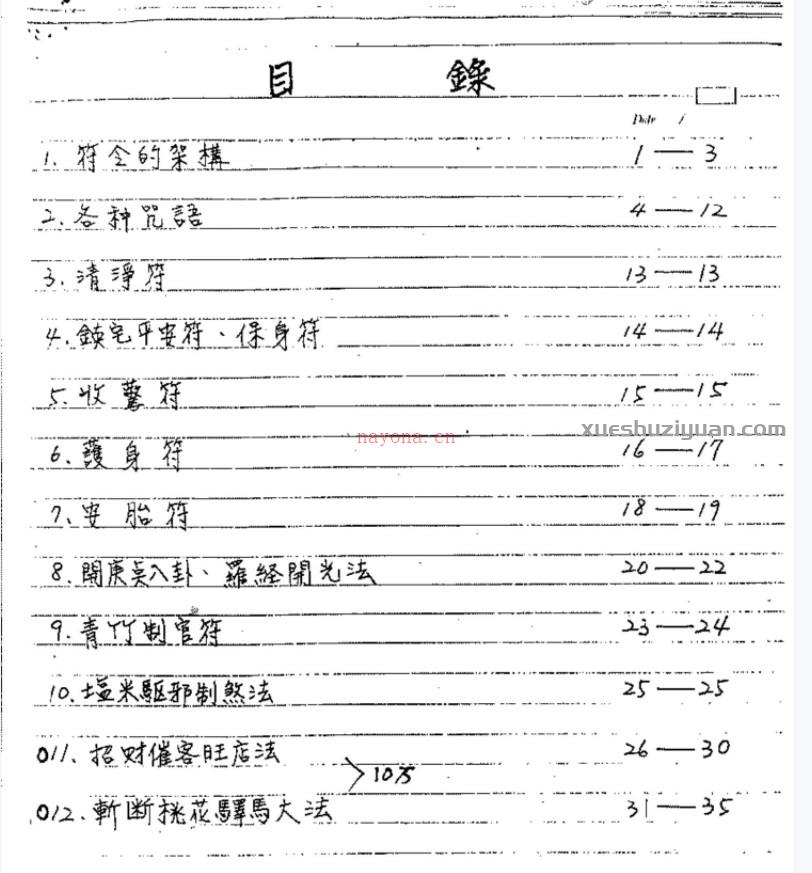 目 錄
Date /
1. 符令的架構 1 — 3
2. 各种咒語 4 — 12
3. 清淨符 13 — 13
4. 鎮宅平安符、保身符 14 — 14
5. 收驚符 15 — 15
xueshuziyuan.com
nayona.cn
6. 護身符 16 — 17
7、安胎符 18 — 19
8. 開庚吳八卦、羅経開光法 20 — 22
9. 青竹制官符 23 — 24
10. 塩米駆邪制煞法 25 — 25
011、招财催客旺店法 26 — 30
>
012. 斬断桃花驛馬大法 31 — 35